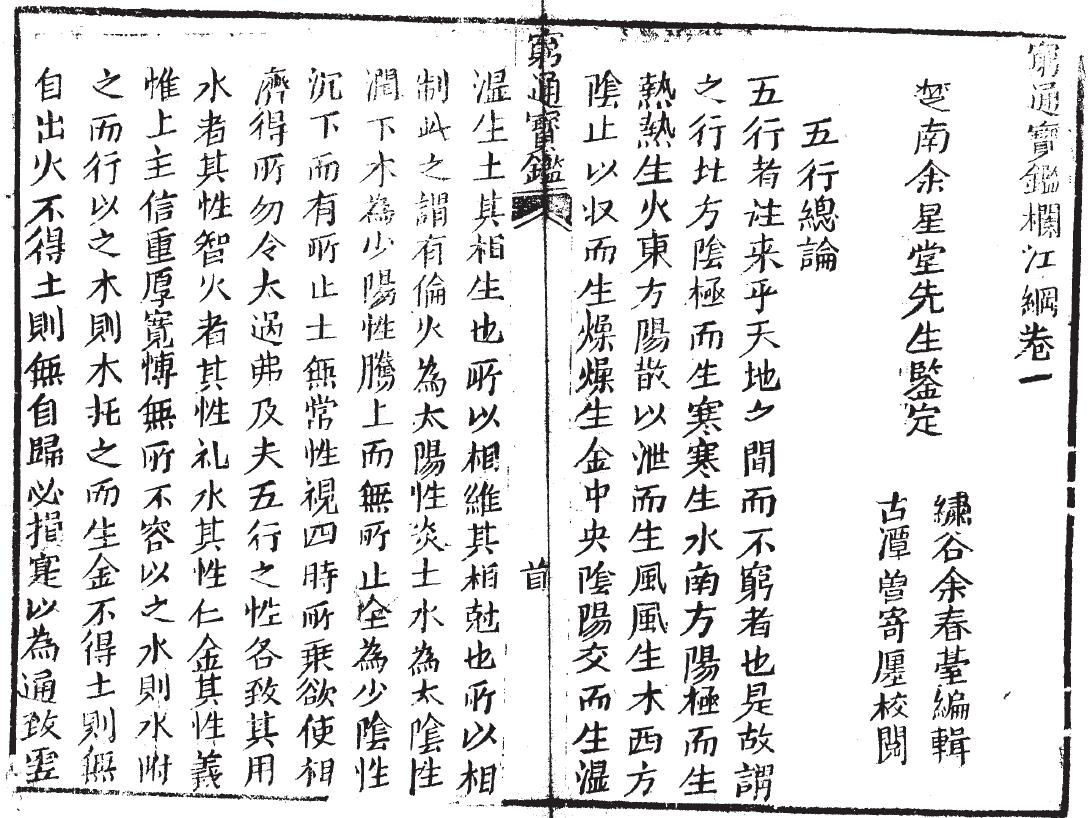 窮通寶鑑欄江網卷一
楚南余星堂先生鑒定
繡谷余春臺編輯
古潭曾寄𢊍校閱
五行總論
五行者往来乎天地夕間而不窮者也是故謂
之行北方陰極而生寒寒生水南方陽極而生
熱熱生火東方陽散以泄而生風風生木西方
陰止以収而生燥燥生金中央陰陽交而生濕
窮通寶鑑
首
湿生土其相生也所以相維其相尅也所以相
制此之謂有倫火為太陽性炎土水為太陰性
潤下木為少陽性騰上而無所止金為少陰性
沉下而有所止土無常性視四時所乗欲使相
濟得所勿令太過弗及夫五行之性各致其用
水者其性智火者其性礼木其性仁金其性義
惟上主信重厚寛慱無所不容以之水則水附
之而行以之木則木托之而生金不得土則無
自出火不得土則無自歸必損寔以為通致虗